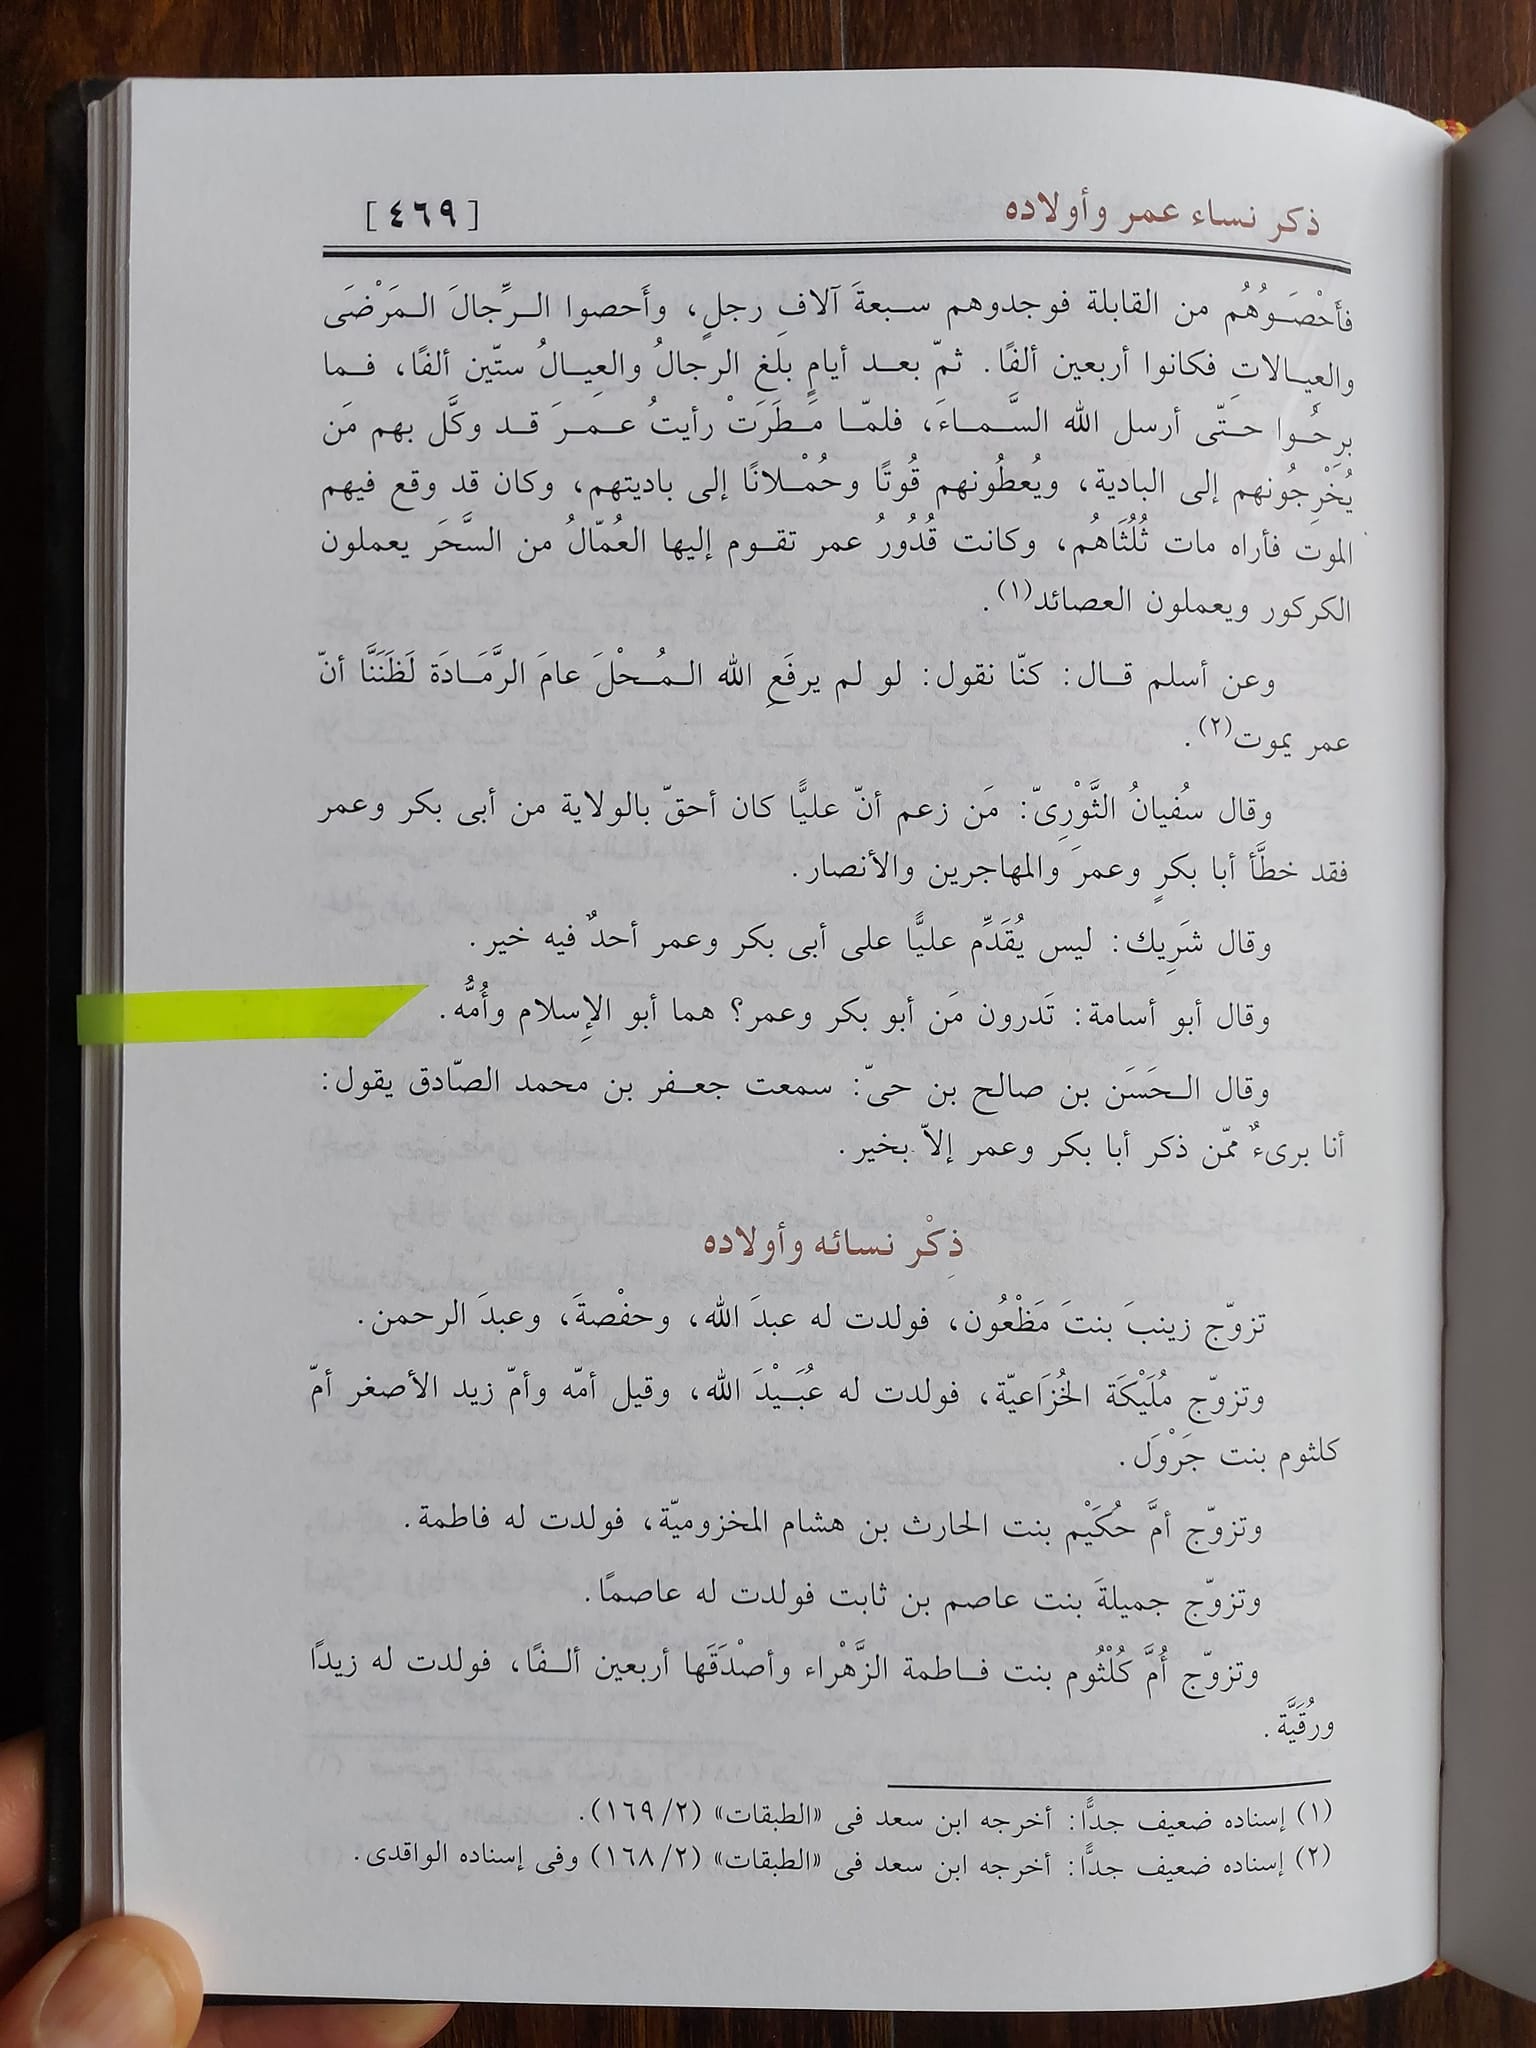 ذكر نساء عمر وأولاده
[٤٦٩]
فأَحْصَوُهُم من القابلة فوجدوهم سبعةَ آلافِ رجلٍ، وأَحصوا الرِّجالَ المَرْضَى
والعِيالاتِ فكانوا أربعين ألفًا. ثمّ بعد أيامٍ بلَغ الرجالُ والعِيالُ ستّين ألفًا، فما
برِحُوا حتّى أرسل الله السَّماءَ، فلمّا مَطَرَتْ رأيتُ عمرَ قد وكَّل بهم مَن
يُخْرِجُونهم إلى البادية، ويُعطُونهم قُوتًا وحُمْلانًا إلى باديتهم، وكان قد وقع فيهم
الموت فأراه مات ثُلُثَاهُم، وكانت قُدُورُ عمر تقوم إليها العُمّالُ من السَّحَر يعملون
الكركور ويعملون العصائد(١).
وعن أسلم قال: كنّا نقول: لو لم يرفَعِ الله المُحْلَ عامَ الرَّمَادَة لَظَنَنَّا أنّ
عمر يموت(٢).
وقال سُفيانُ الثَّوْرِىّ: مَن زعم أنّ عليًّا كان أحقّ بالولاية من أبى بكر وعمر
فقد خطَّأ أبا بكرٍ وعمرَ والمهاجرين والأنصار.
وقال شَرِيك: ليس يُقَدِّم عليًّا على أبى بكر وعمر أحدٌ فيه خير.
وقال أبو أسامة: تَدرون مَن أبو بكر وعمر؟ هما أبو الإِسلام وأُمُّه.
وقال الحَسَن بن صالح بن حىّ: سمعت جعفر بن محمد الصّادق يقول:
أنا برىءٌ ممّن ذكر أبا بكر وعمر إلاّ بخير.
ذِكْر نسائه وأولاده
تزوّج زينبَ بنتَ مَظْعُون، فولدت له عبدَ الله، وحفْصةَ، وعبدَ الرحمن.
وتزوّج مُلَيْكَة الخُزَاعيّة، فولدت له عُبَيْدَ الله، وقيل أمّه وأمّ زيد الأصغر أمّ
كلثوم بنت جَرْوَل.
وتزوّج أمَّ حُكَيْم بنت الحارث بن هشام المخزوميّة، فولدت له فاطمة.
وتزوّج جميلةَ بنت عاصم بن ثابت فولدت له عاصمًا.
وتزوّج أُمَّ كُلْثُوم بنت فاطمة الزَّهْراء وأصْدَقَها أربعين ألفًا، فولدت له زيدًا
ورُقَيَّة.
(١) إسناده ضعيف جدًّا: أخرجه ابن سعد فى «الطبقات» (٢/١٦٩).
(٢) إسناده ضعيف جدًّا: أخرجه ابن سعد فى «الطبقات» (٢/١٦٨) وفى إسناده الواقدى.